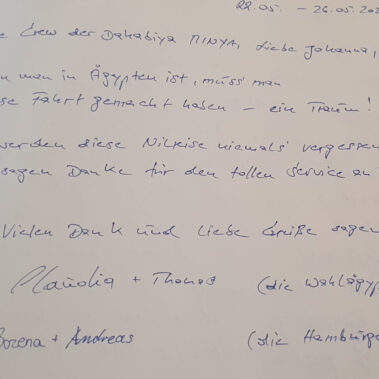 22.05. – 26.05.202
e Crew der Dahabiya MINYA, liebe Johanna,
n man in Ägypten ist, muss man
se Fahrt gemacht haben – ein Traum!
werden diese Nilreise niemals vergessen
sagen Danke für den tollen Service an
Vielen Dank und liebe Grüße sagen
Claudia + Thomas (die Wahlägyp
Bozena + Andreas (die Hamburge